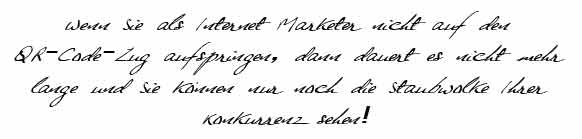 wenn sie als Internet Marketer nicht auf den
QR-Code-Zug aufspringen, dann dauert es nicht mehr
lange und sie können nur noch die staubwolke Ihrer
Konkurrenz sehen!